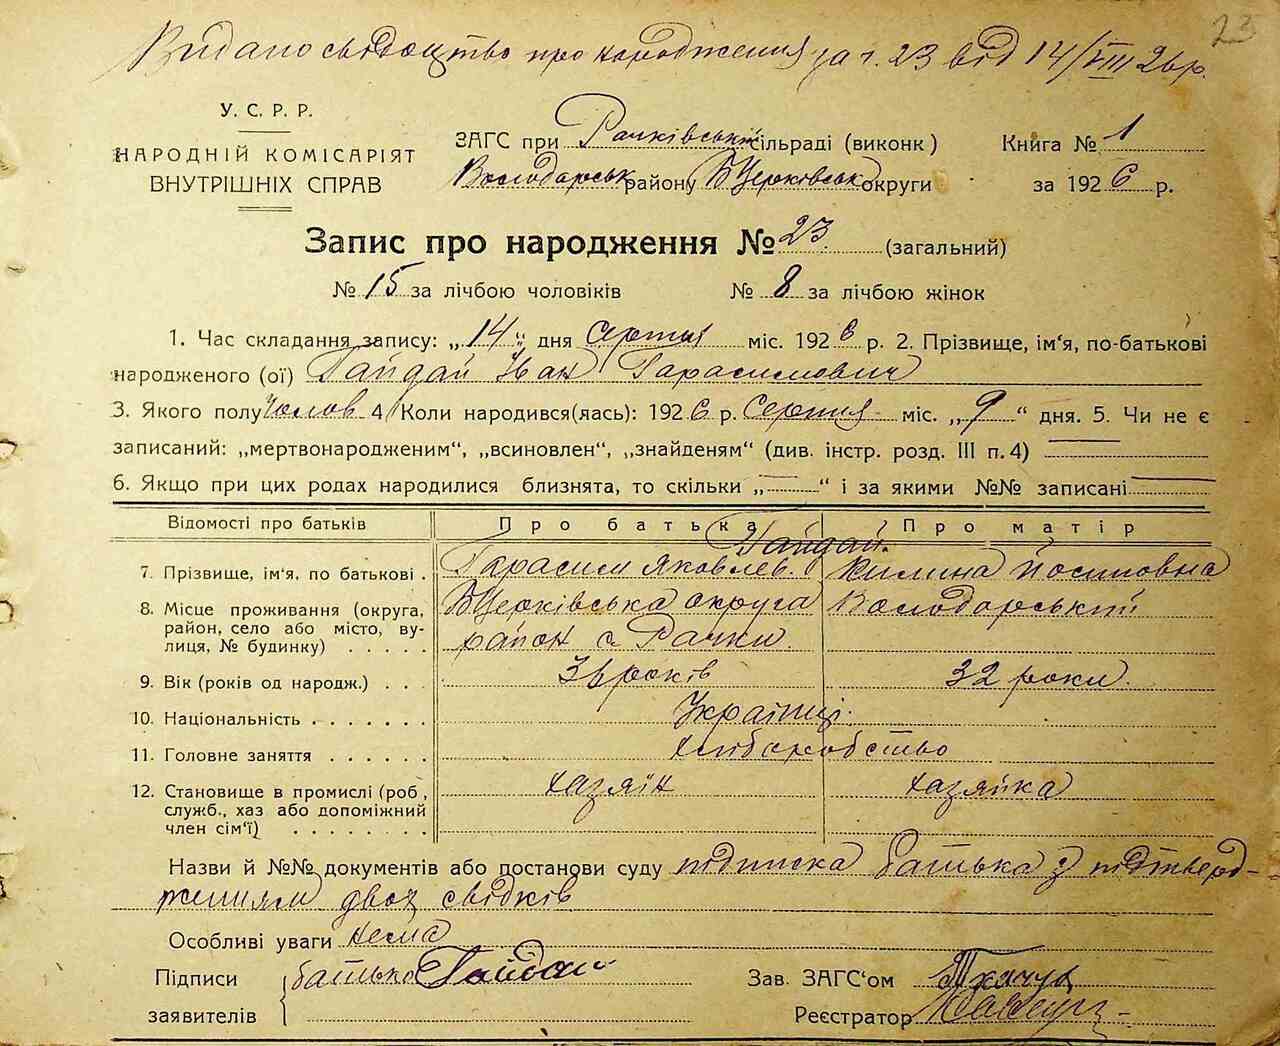 23
Видано свідоцтво про народження за ч. 23 від 14/VIII 26 р.
У. С. Р. Р.
НАРОДНІЙ КОМІСАРІЯТ
ВНУТРІШНІХ СПРАВ
ЗАГС при Рачківській сільраді (виконк)
Володарськ району БЦерківськ округи
Книга № 1
за 1926 р.
Запис про народження № 23 (загальний)
№ 15 за лічбою чоловіків № 8 за лічбою жінок
1. Час складання запису: „14" дня Серпня міс. 1926 р. 2. Прізвище, ім'я, по-батькові
народженого (ої) Гайдай Іван Гарасимович
3. Якого полу Чолов 4 Коли народився(лась): 1926 р. Серпня міс. „9" дня. 5. Чи не є
записаний: „мертвонародженим", „всиновлен", „знайденям" (див. інстр. розд. III п. 4)
6. Якщо при цих родах народилися близнята, то скільки „ " і за якими №№ записані
Відомості про батьків Про батька Про матір
Гайдай.
7. Прізвище, ім'я, по батькові . Гарасим Яковлев. Килина Йосиповна
8. Місце проживання (округа, БЦерківська округа Володарський
район, село або місто, ву-
лиця, № будинку) . . . . . район с. Рачки.
9. Вік (років од народж.) . . . 36 років 32 роки.
10. Національність . . . . . . . Українці.
11. Головне заняття . . . . . . хліборобство
12. Становище в промислі (роб, хазяїн хазяйка
служб., хаз або допоміжний
член сім'ї) . . . . . . . .
Назви й №№ документів або постанови суду підписка батька з підтверд-
женням двох свідків
Особливі уваги нема
Підписи батько Гайдай
заявителів
Зав. ЗАГС'ом Ткачук
Реєстратор